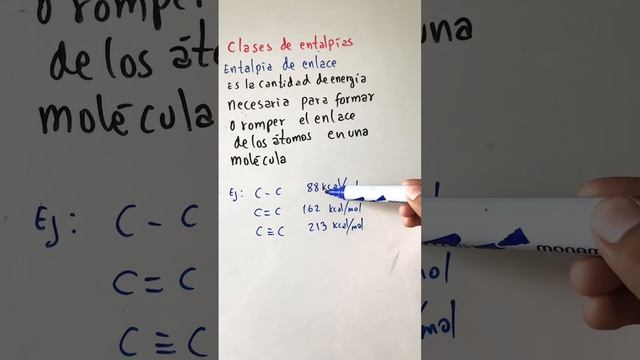 Clases de entalpías
Entalpia de enlace
Es la cantidad de energía
necesaria para formar
o romper el enlace
de los átomos en una
molécula
Ej: C - C 88 kcal/
C = C 162 kcal/mol
C ≡ C 213 kcal/mol